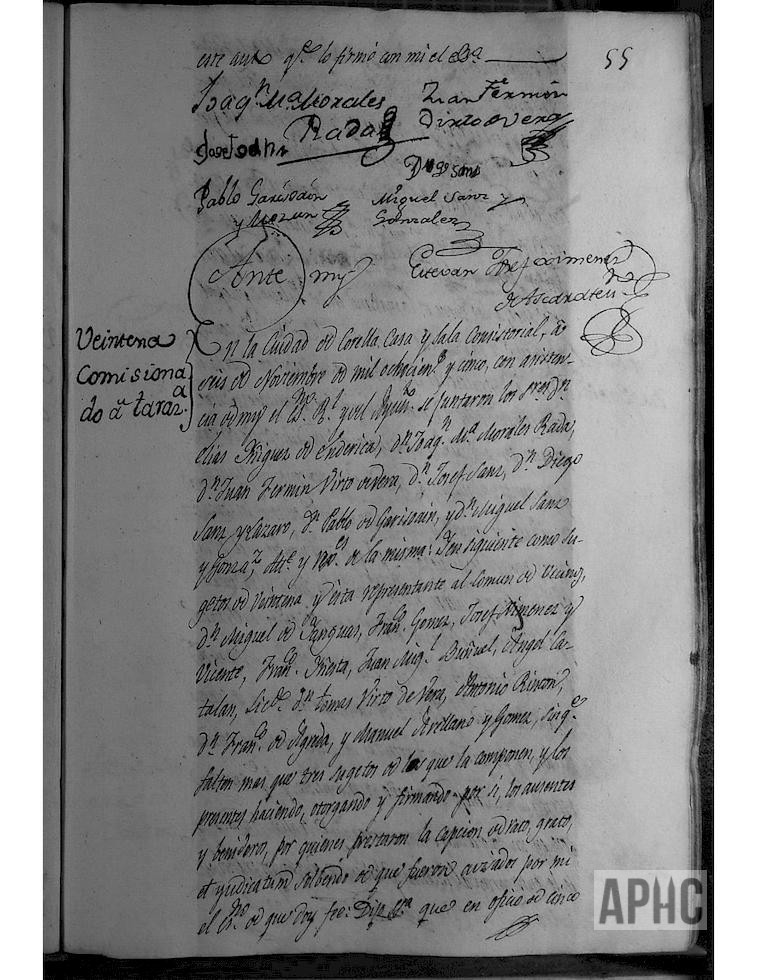 este auto qe lo firmó con mi el Essno
55
Joaqn Ma Morales
Rada
Juan Fermin
Virto de Vera
Josef Sanz
Diego Sanz
Pablo Garisoáin
Miguel Sanz y
Gonzalez
Ante my
Estevan Josef Ximenez
Veintena
Comisiona
do a taraz.a
En la Ciudad de Corella Casa y Sala Consistorial, a
seis de Noviembre de mil ochocien.s y cinco, con asisten-
cia de my el Esno Rl y del Ayunto se juntaron los Sres Dn
Elias Iñiguez de Enderica, Dn Joaqn Ma Morales Rada,
Dn Juan Fermin Virto de Vera, Dn Josef Sanz, Dn Diego
Sanz y Lazaro, Dn Pablo de Garisoain, y Dn Miguel Sanz
y Gonzaz, Ale y Reg.s de la misma: Ten siguiente como Su-
getos de Veintena y esta representante al Comun de Vecinos,
Dn Miguel de Sanguas, Franco Gomez, Josef Ximenez y
Vicente, Franco Miesta, Juan Migl Buñuel, Angel Ca-
talan, Licdo Dn Tomas Virto de Vera, Antonio Rincon,
Dn Franco de Agreda, y Manuel Arellano y Gomez, sin qe
falten mas que tres sugetos de los que la componen, y los
presentes haciendo, otorgando y firmando por si, los ausentes
y benidero, por quienes prestaron la Capcion de rato, grato,
et judicatum solbendo de que fueron avisados por mi
el Esno de que doy fee: Dijo Sria que en oficio de cinco
APHC